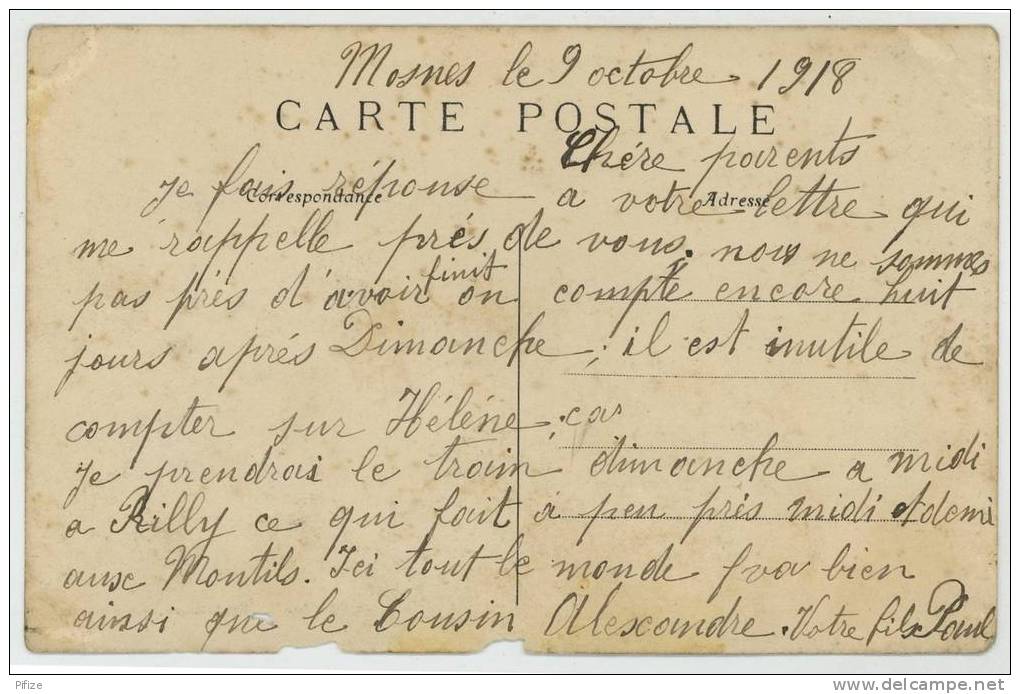 Mosnes le 9 octobre 1918
CARTE POSTALE
Chére parents
Correspondance
Adresse
Je fais réponse a votre lettre qui
me rappelle prés de vous. nous ne sommes
pas prés d'avoir finit on compte encore huit
jours aprés Dimanche ; il est inutile de
compter sur Héléne ; car
Je prendrai le train dimanche a midi
a Rilly ce qui fait à peu prés midi et demi
aux Montils. Ici tout le monde va bien
ainsi que le Cousin Alexandre. Votre fils Paul
Pfize
http://www.delcampe.net